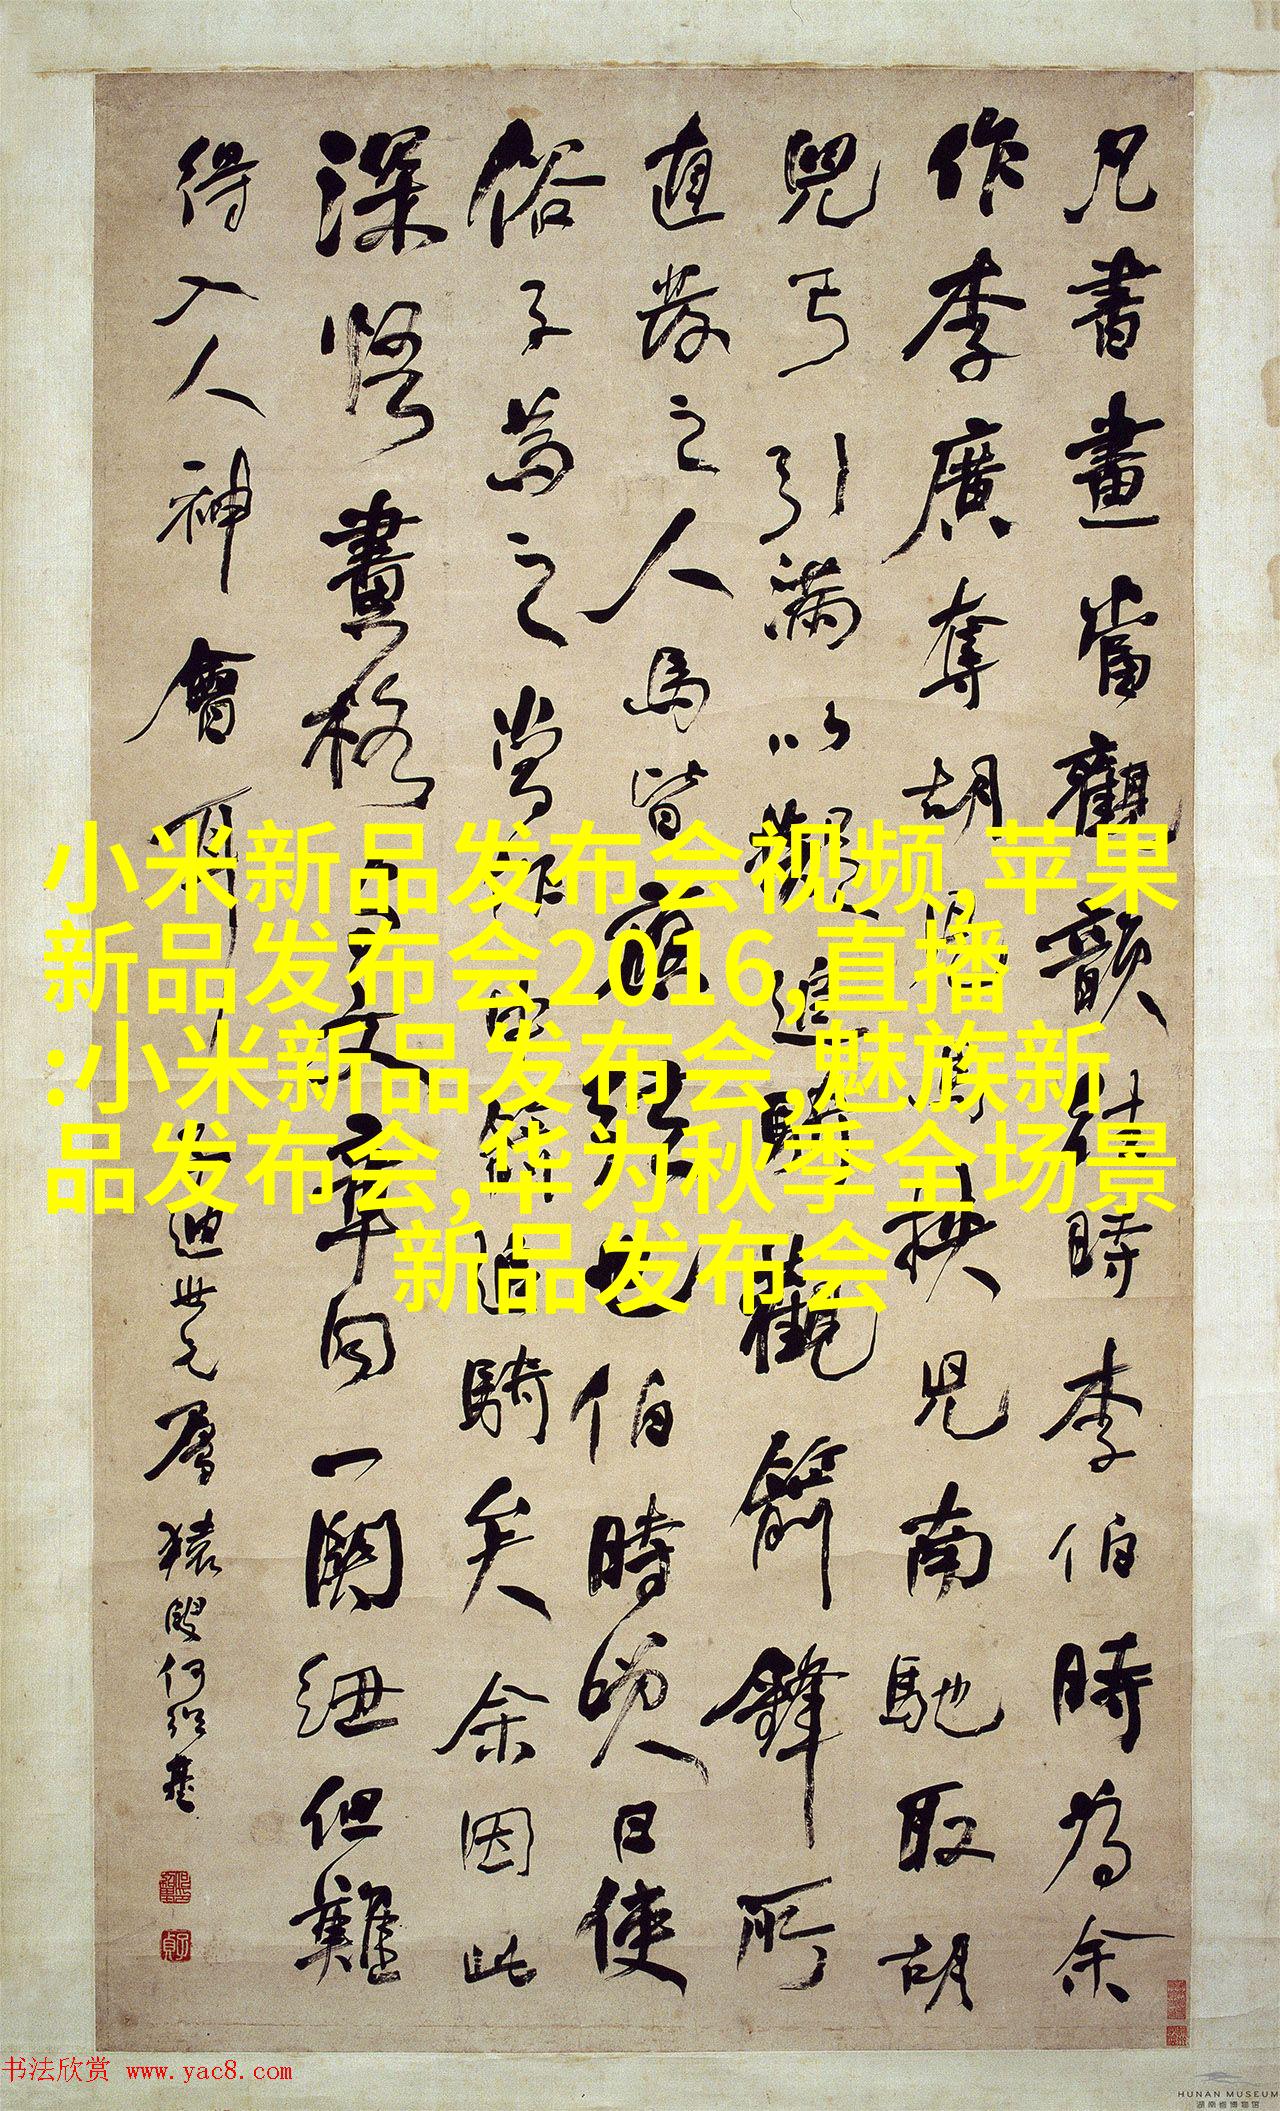 凡書畫當觀韻往時李伯時為余
作李廣奪胡兒馬挾兒南馳取胡
兒弓引滿以擬追騎觀箭鋒所
直發之人馬皆應弦也伯時笑曰使
俗子為之當作中箭追騎矣余因此
深悟畫格與文章同一關紐但難
得入人神會耳
迪世元層猿叟何紹基
小米新品发布会视频,苹果
新品发布会2016,直播
:小米新品发布会,魅族新
品发布会,华为秋季全场景
新品发布会
书法欣赏 www.yac8.com
HUNAN MUSEUM
湖南省博物馆